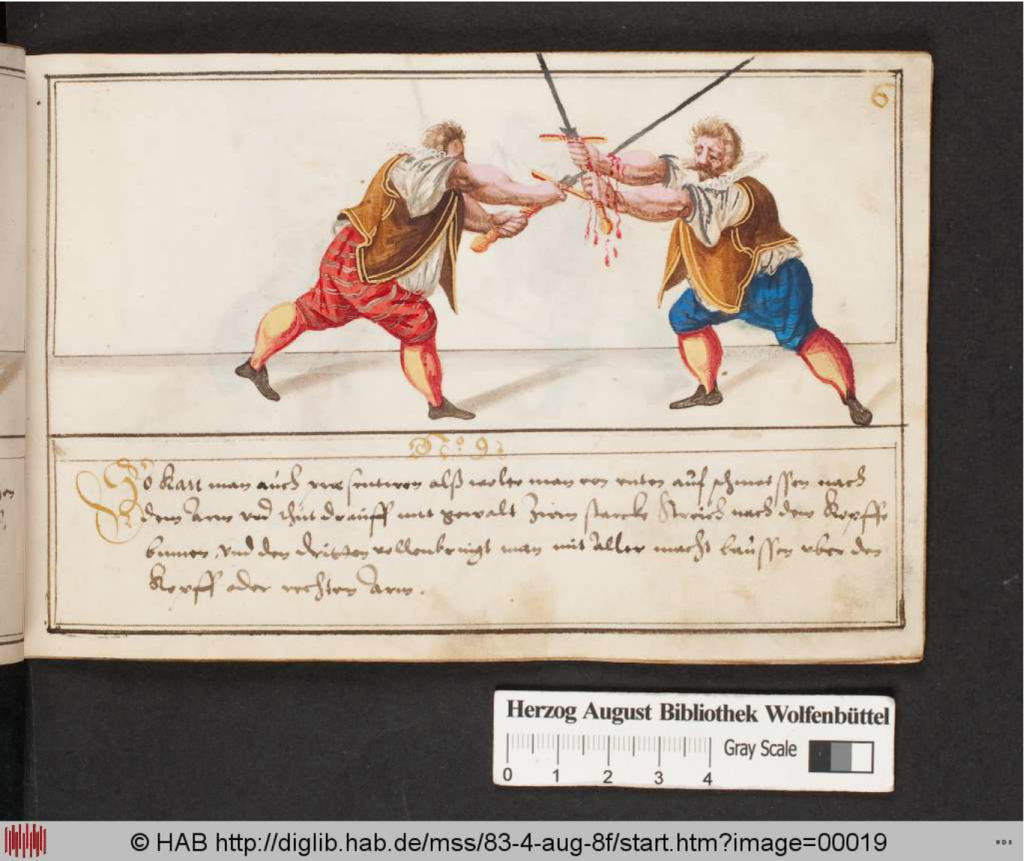 6
No. 9.
So kan man auch presentiren alß wolte man von unten auf schmeissen nach
dem Arm und thut drauff mit gewalt Zwen starcke Streich nach dem Kopffe
binnen und den dritten vollenbringt man mit aller macht baussen uber den
Kopff oder rechten Arm.
Herzog August Bibliothek Wolfenbüttel
Gray Scale
0 1 2 3 4
© HAB http://diglib.hab.de/mss/83-4-aug-8f/start.htm?image=00019